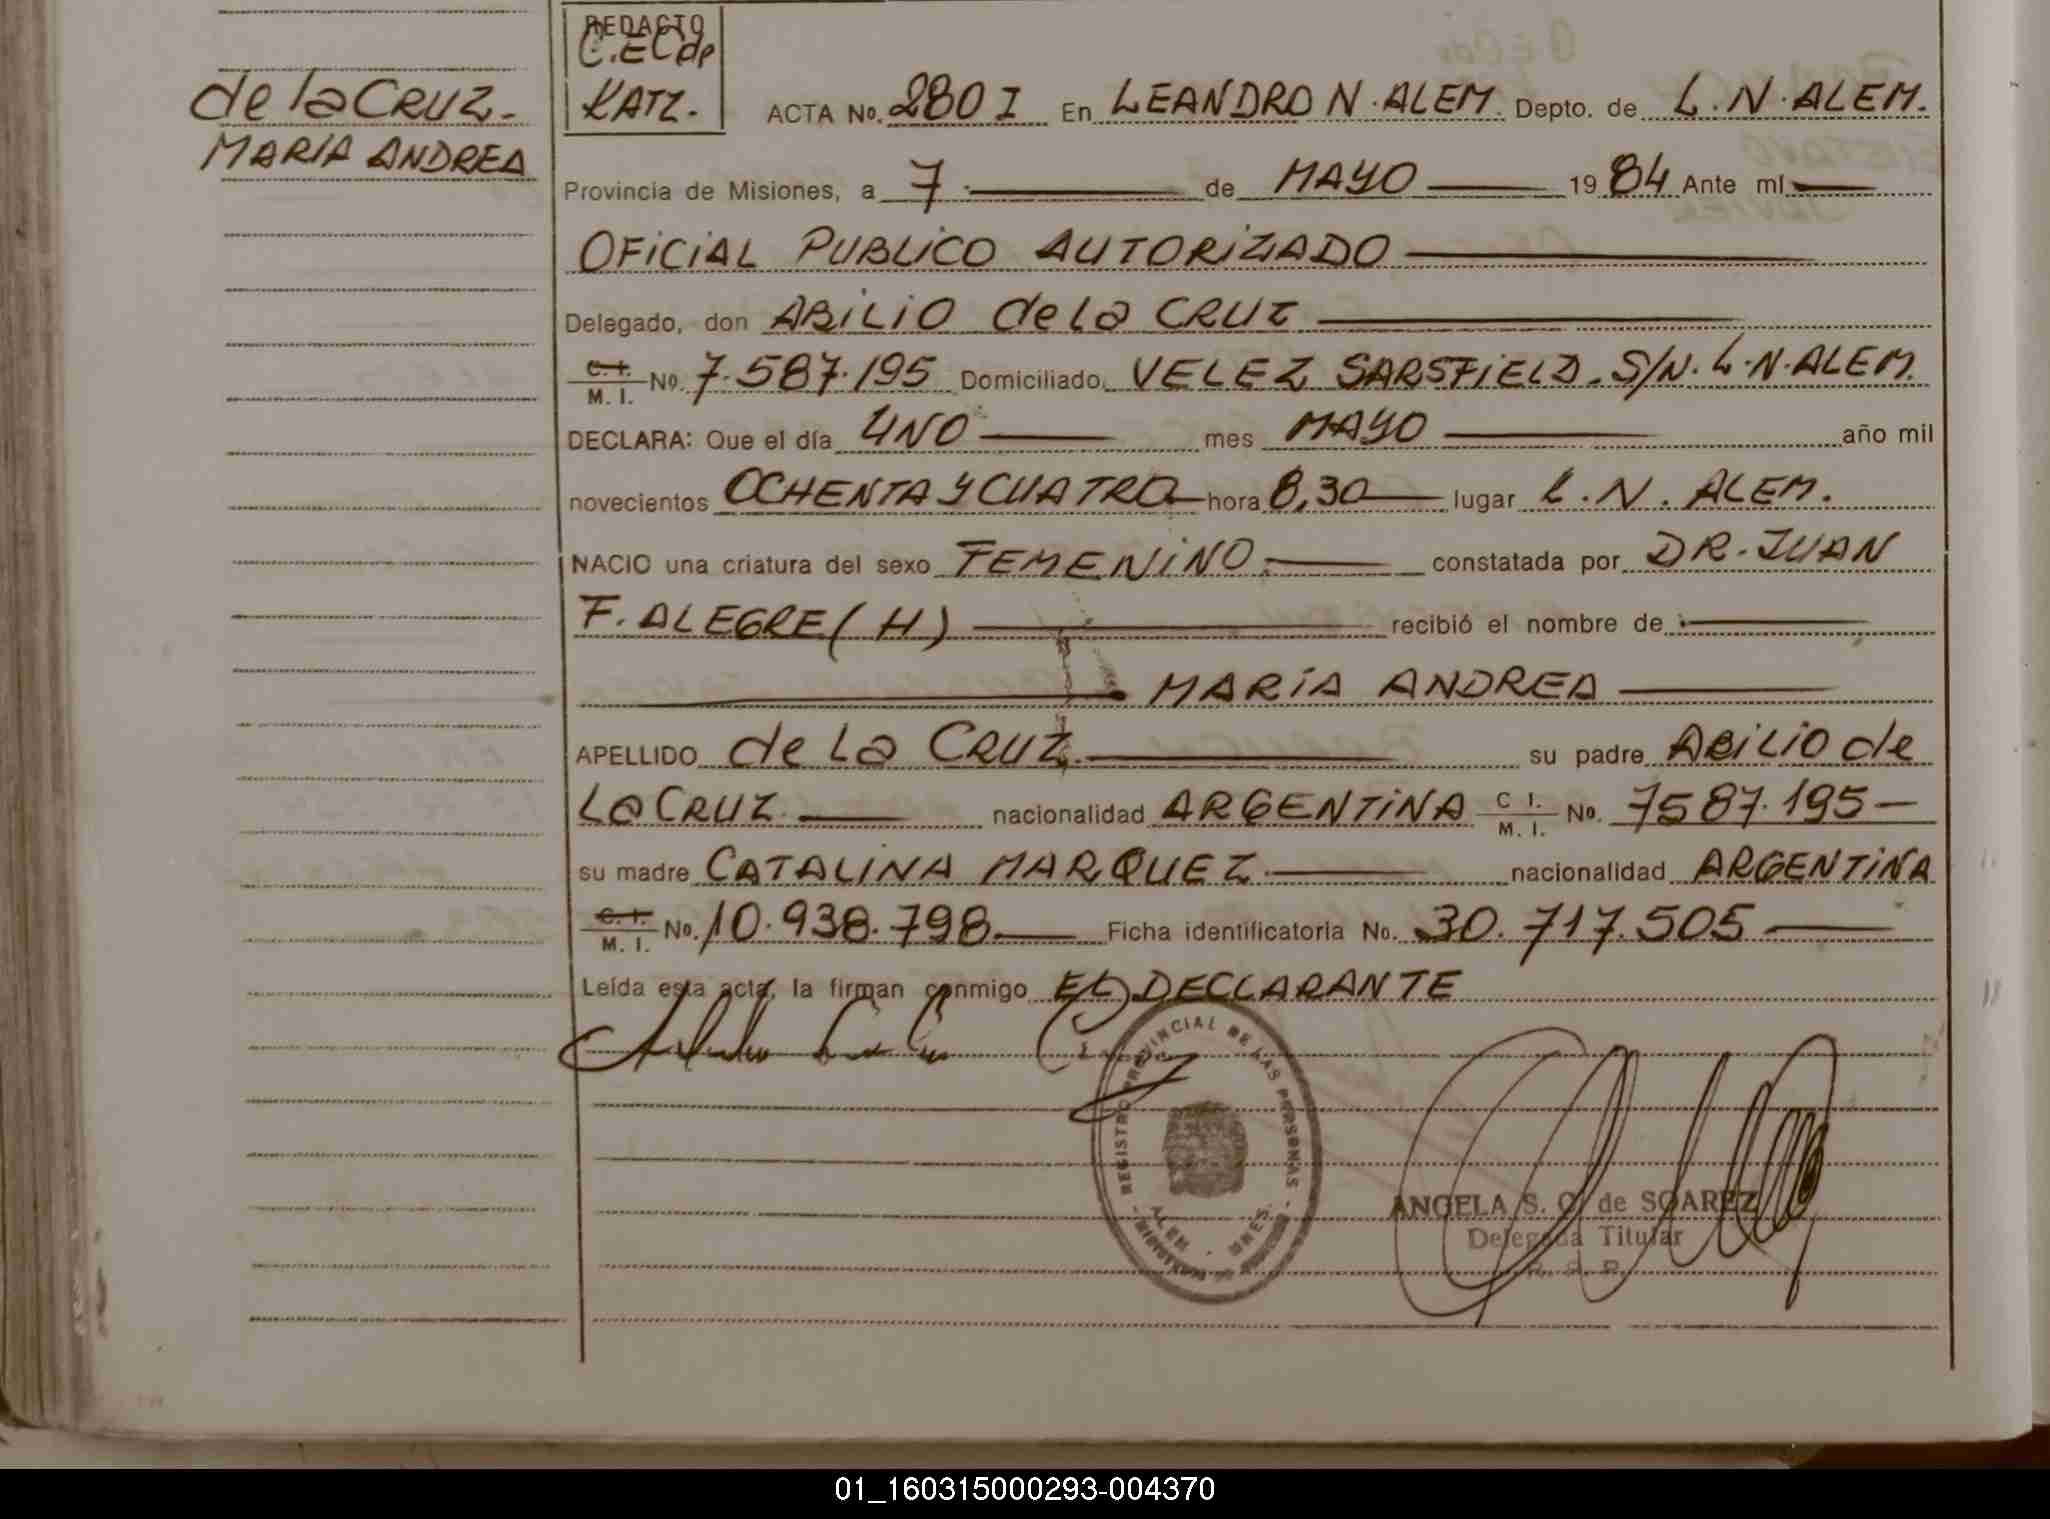 REDACTO
C.ECdp
KATZ.
de la CRUZ.
MARIA ANDREA
ACTA No. 280 I En LEANDRO N. ALEM. Depto. de L. N. ALEM.
Provincia de Misiones, a 7 de MAYO 19 84 Ante mí
OFICIAL PUBLICO AUTORIZADO
Delegado, don ABILIO de la CRUZ
C. I. / M. I. No. 7.587.195 Domiciliado VELEZ SARSFIELD. S/N. L.N. ALEM.
DECLARA: Que el día UNO mes MAYO año mil
novecientos OCHENTA Y CUATRO hora 8,30 lugar L. N. ALEM.
NACIO una criatura del sexo FEMENINO. constatada por DR. JUAN
F. ALEGRE (H) recibió el nombre de
MARIA ANDREA
APELLIDO de la CRUZ. su padre ABILIO de
La CRUZ. nacionalidad ARGENTINA C I. / M. I. No. 7587.195
su madre CATALINA MARQUEZ nacionalidad ARGENTINA
C. I. / M. I. No. 10.938.798 Ficha identificatoria No. 30.717.505
Leída esta acta, la firman conmigo EL DECLARANTE
REGISTRO PROVINCIAL DE LAS PERSONAS
ALEM - MNES.
ANGELA S. O. de SOAREZ
Delegada Titular
R. P. P.
01_160315000293-004370